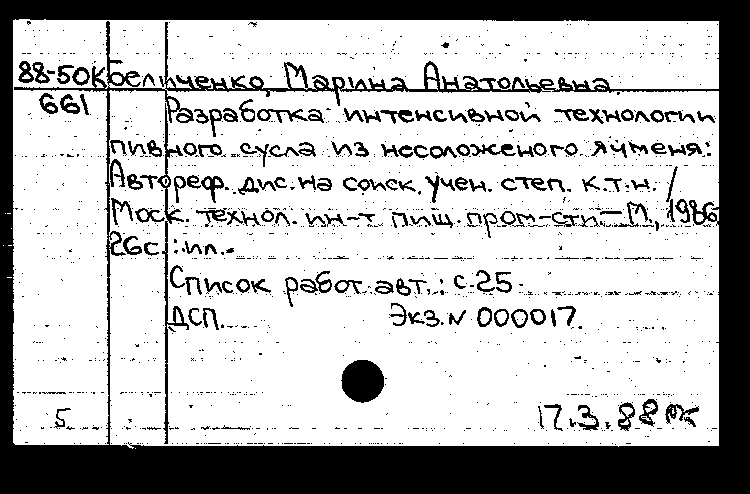 88-50К Беличенко, Марина Анатольевна.
661 Разработка интенсивной технологии
пивного сусла из несоложеного ячменя:
Автореф. дис. на соиск. учен. степ. к.т.н. /
Моск. технол. ин-т пищ. пром-сти.—М., 1986
26с. : ил.-
Список работ авт.: с.25.
ДСП. Экз.N 000017.
5 17.3.88